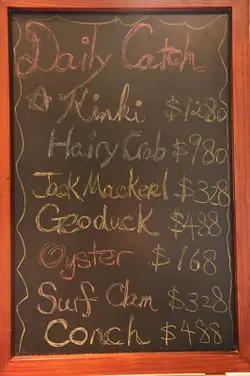 Daily Catch
Kinki $1280
Hairy Crab $980
Jack Mackerel $328
Geoduck $488
Oyster $168
Surf Clam $328
Conch $488